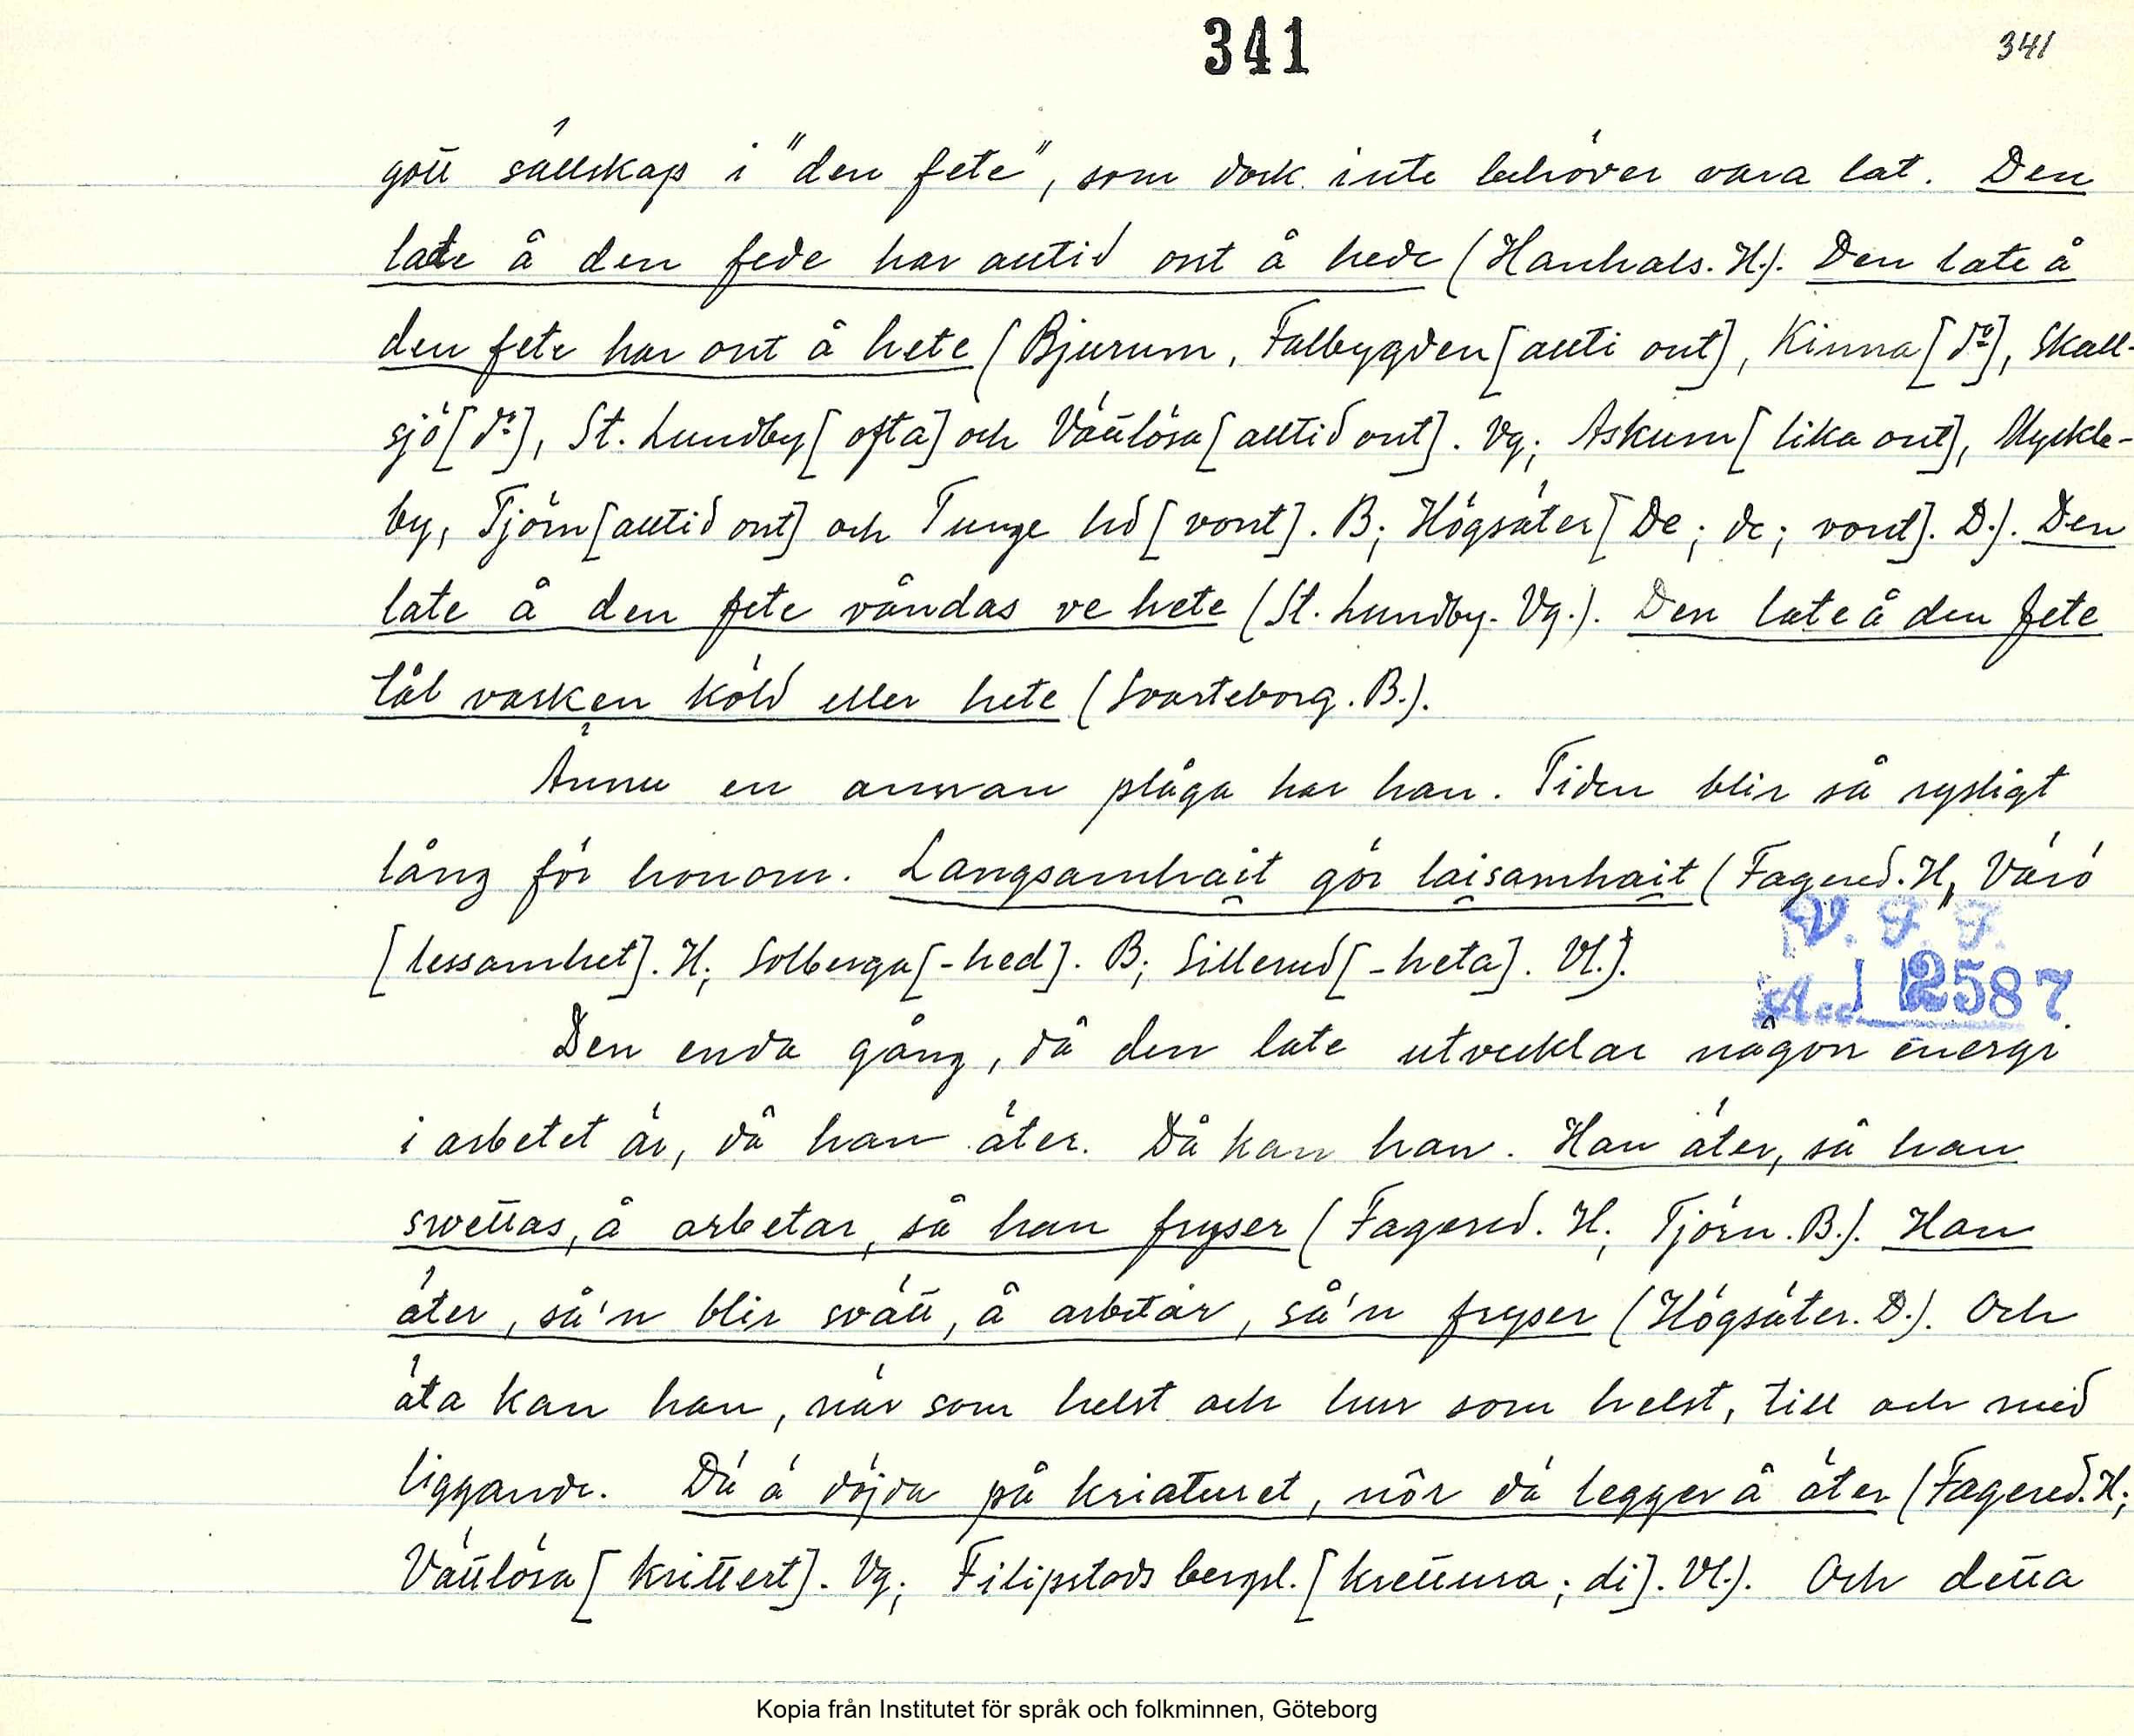 341
341
gott sällskap i "den fete", som dock inte behöver vara lat. Den
late å den fede har autid ont å hede (Hanhals. H.). Den late å
den fete har ont å hete (Bjurum, Falbygden [allti ont], Kinna [d:o], Skall-
sjö [d:o], St. Lundby [ofta] och Vättlösa [alltid ont]. Vg; Askum [lika ont], Myckle-
by, Tjörn [alltid ont] och Tunge hd [vont]. B; Högsäter [De; de; vont]. D.). Den
late å den fete våndas ve hete (St. Lundby. Vg.). Den late å den fete
tål varken köld eller hete (Svarteborg. B.).
Ännu en annan plåga har han. Tiden blir så rysligt
lång för honom. Langsamhait gör laisamhait (Fagered. H, Värö
[lessamhet]. H; Solberga [-hed]. B; Sillerud [-heta]. Vl.).
V. F. F.
Acc 12587
Den enda gång, då den late utvecklar någon energi
i arbetet är, då han äter. Då kan han. Han äter, så han
swettas, å arbetar, så han fryser (Fagered. H; Tjörn. B.). Han
äter, så'n blir svätt, å arbetar, så'n fryser (Högsäter. D.). Och
äta kan han, när som helst och hur som helst, till och med
liggande. Dä ä döjda på kriaturet, nôr dä legger å äter (Fagered. H;
Vättlösa [krittert]. Vg; Filipstads bergsl. [krettura; di]. Vl.). Och detta
Kopia från Institutet för språk och folkminnen, Göteborg